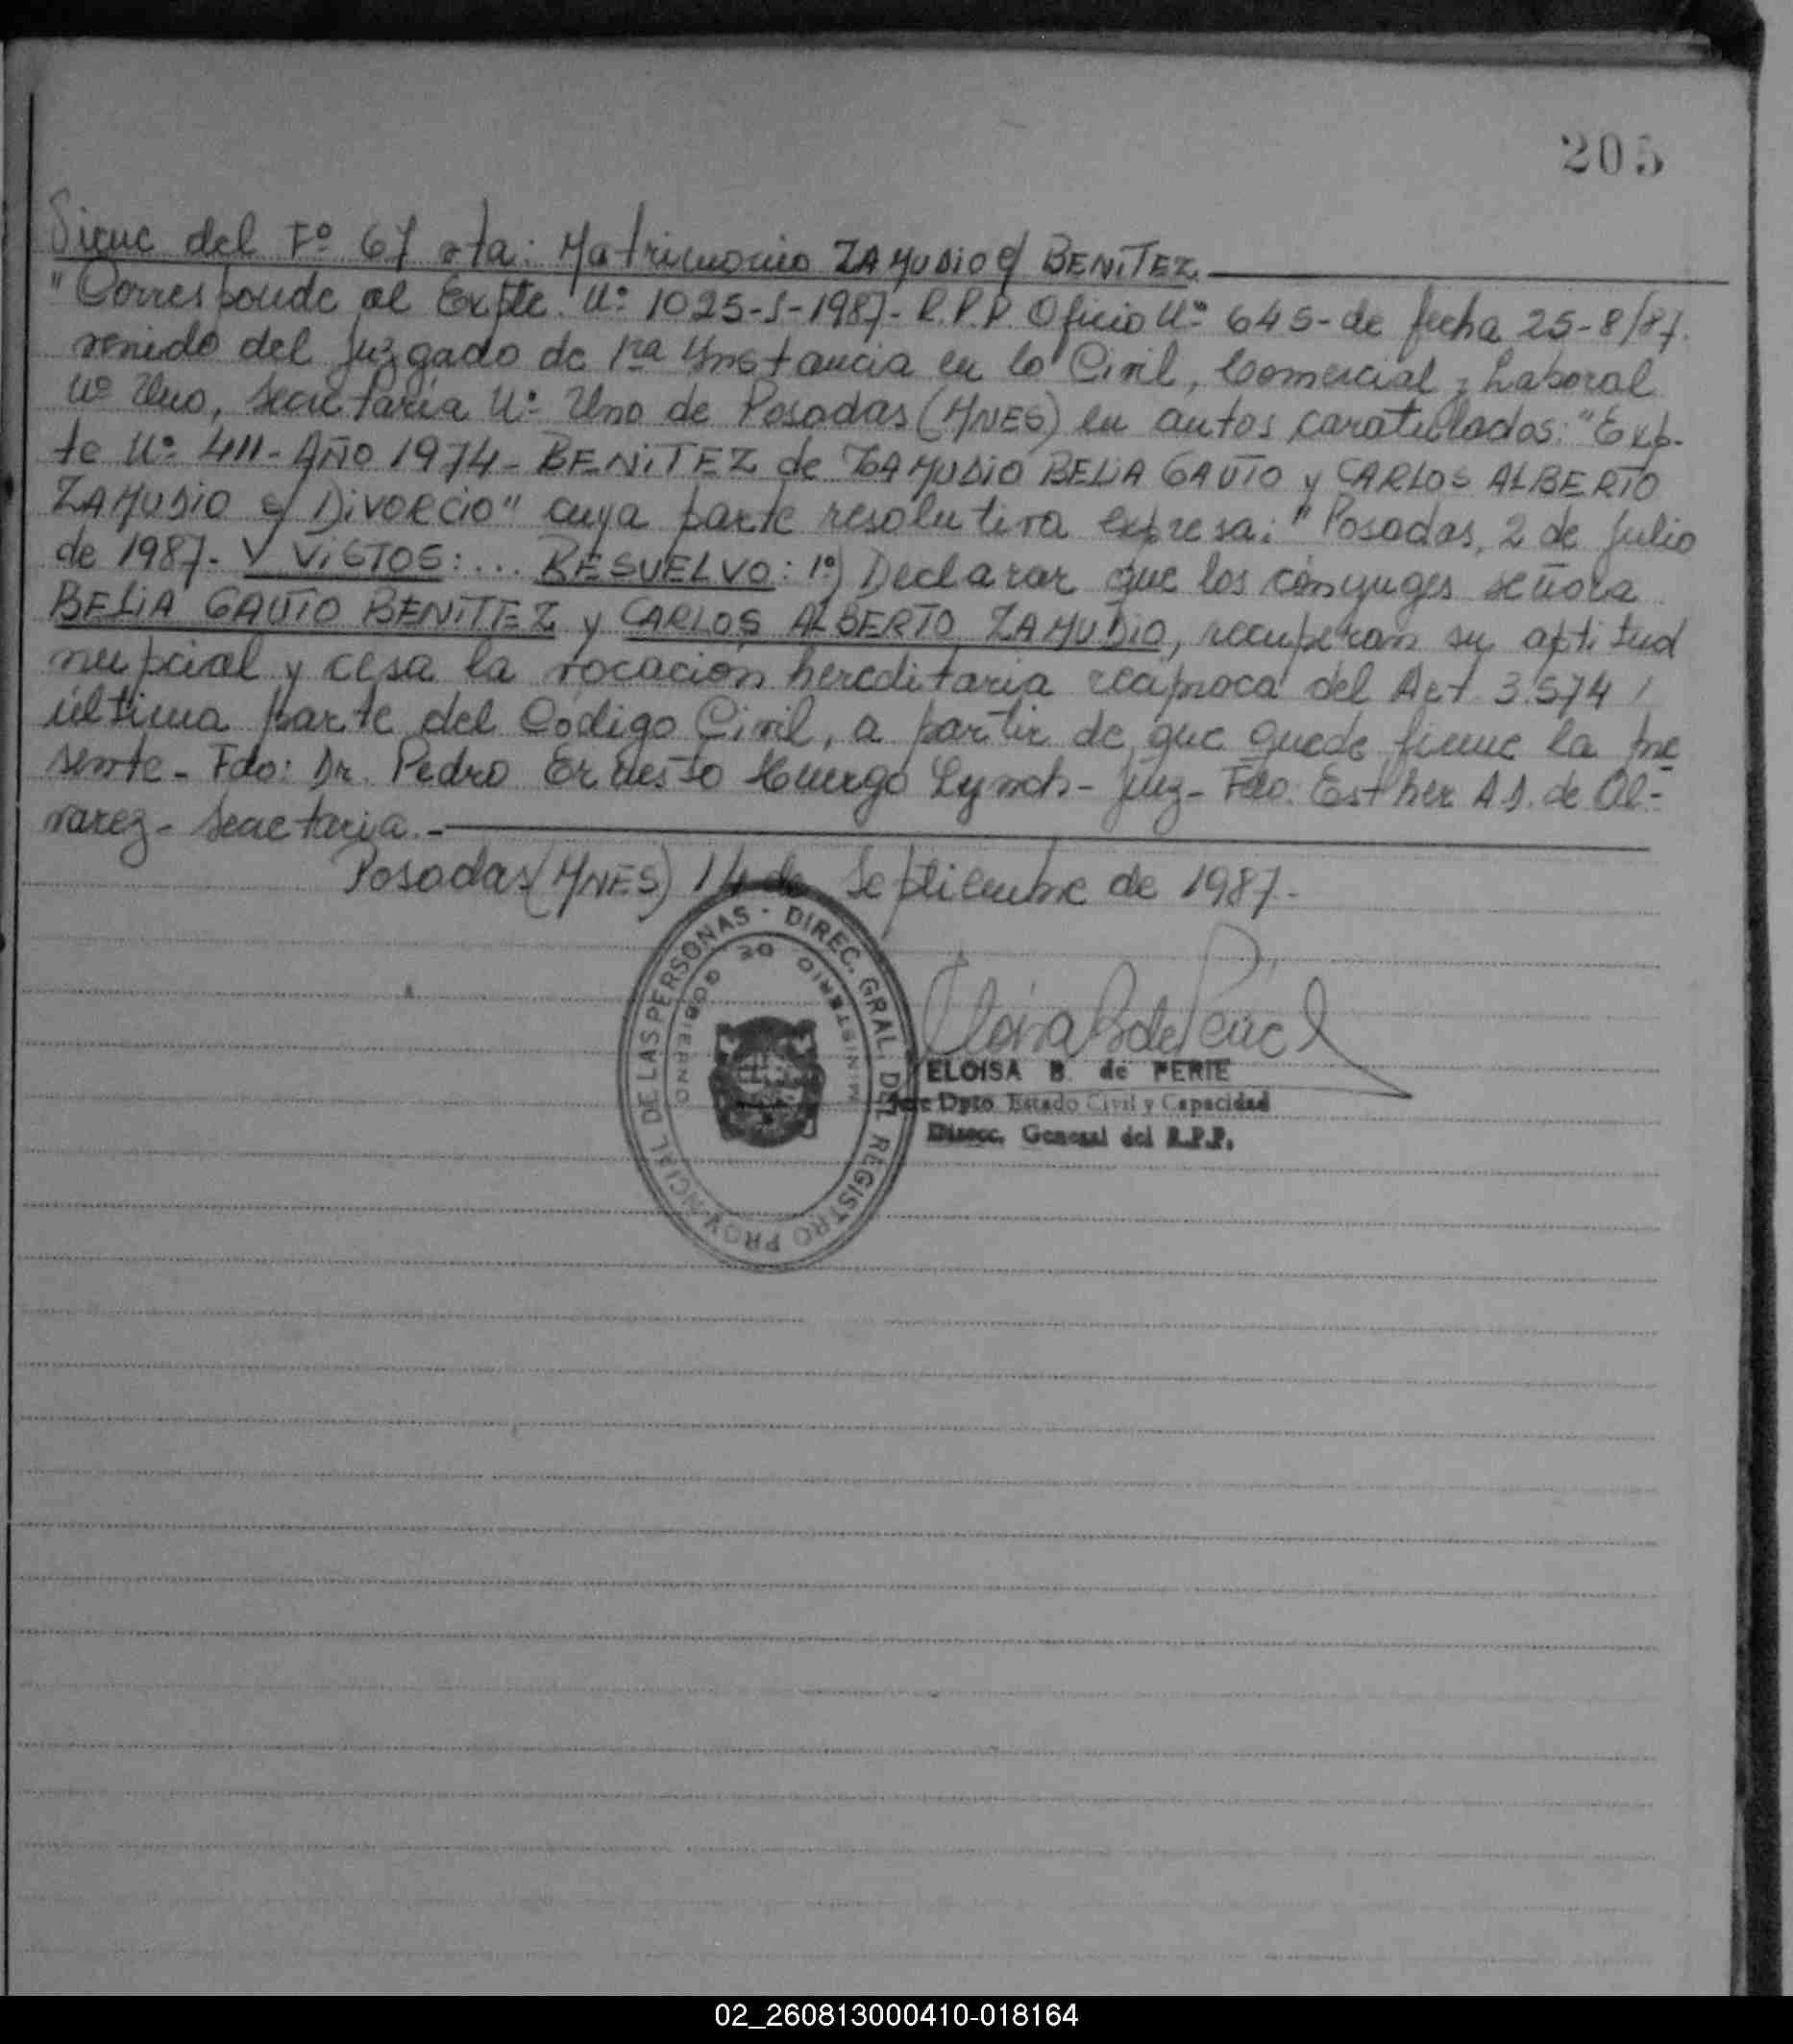 205
Sigue del Fº 67 vta: Matrimonio ZAMUDIO c/ BENiTEZ.
"Corresponde al Expte. Nº 1025-S-1987- R.P.P. Oficio Nº 645- de fecha 25-8/87.
venido del Juzgado de 1ra Ynstancia en lo Civil, Comercial y Laboral
Nº Uno, Secretaría Nº Uno de Posadas (MNES) en autos caratulados: "Exp-
te Nº 411- AÑO 1974- BENiTEZ de ZAMUDIO BELiA GAUTO y CARLOS ALBERTO
ZAMUDIO s/ DiVORCiO" cuya parte resolutiva expresa: "Posadas, 2 de Julio
de 1987- Y ViSTOS: ... RESUELVO: 1º) Declarar que los cónyuges señora
BELiA GAUTO BENiTEZ y CARLOS ALBERTO ZAMUDiO, recuperan su aptitud
nupcial y cesa la vocación hereditaria recíproca del Art. 3.574
última parte del Código Civil, a partir de que quede firme la pre
sente- Fdo: Dr. Pedro Ernesto Huergo Lynch- Juez- Fdo: Esther A.S. de Al-
varez- Secretaria.-
Posadas (MNES) 14 de Septiembre de 1987.-
DIREC. GRAL. DEL REGISTRO PROVINCIAL DE LAS PERSONAS -
MINISTERIO DE GOBIERNO
ELOISA B. de PERIE
Jefe Dpto. Estado Civil y Capacidad
Direcc. General del R.P.P.
02_260813000410-018164